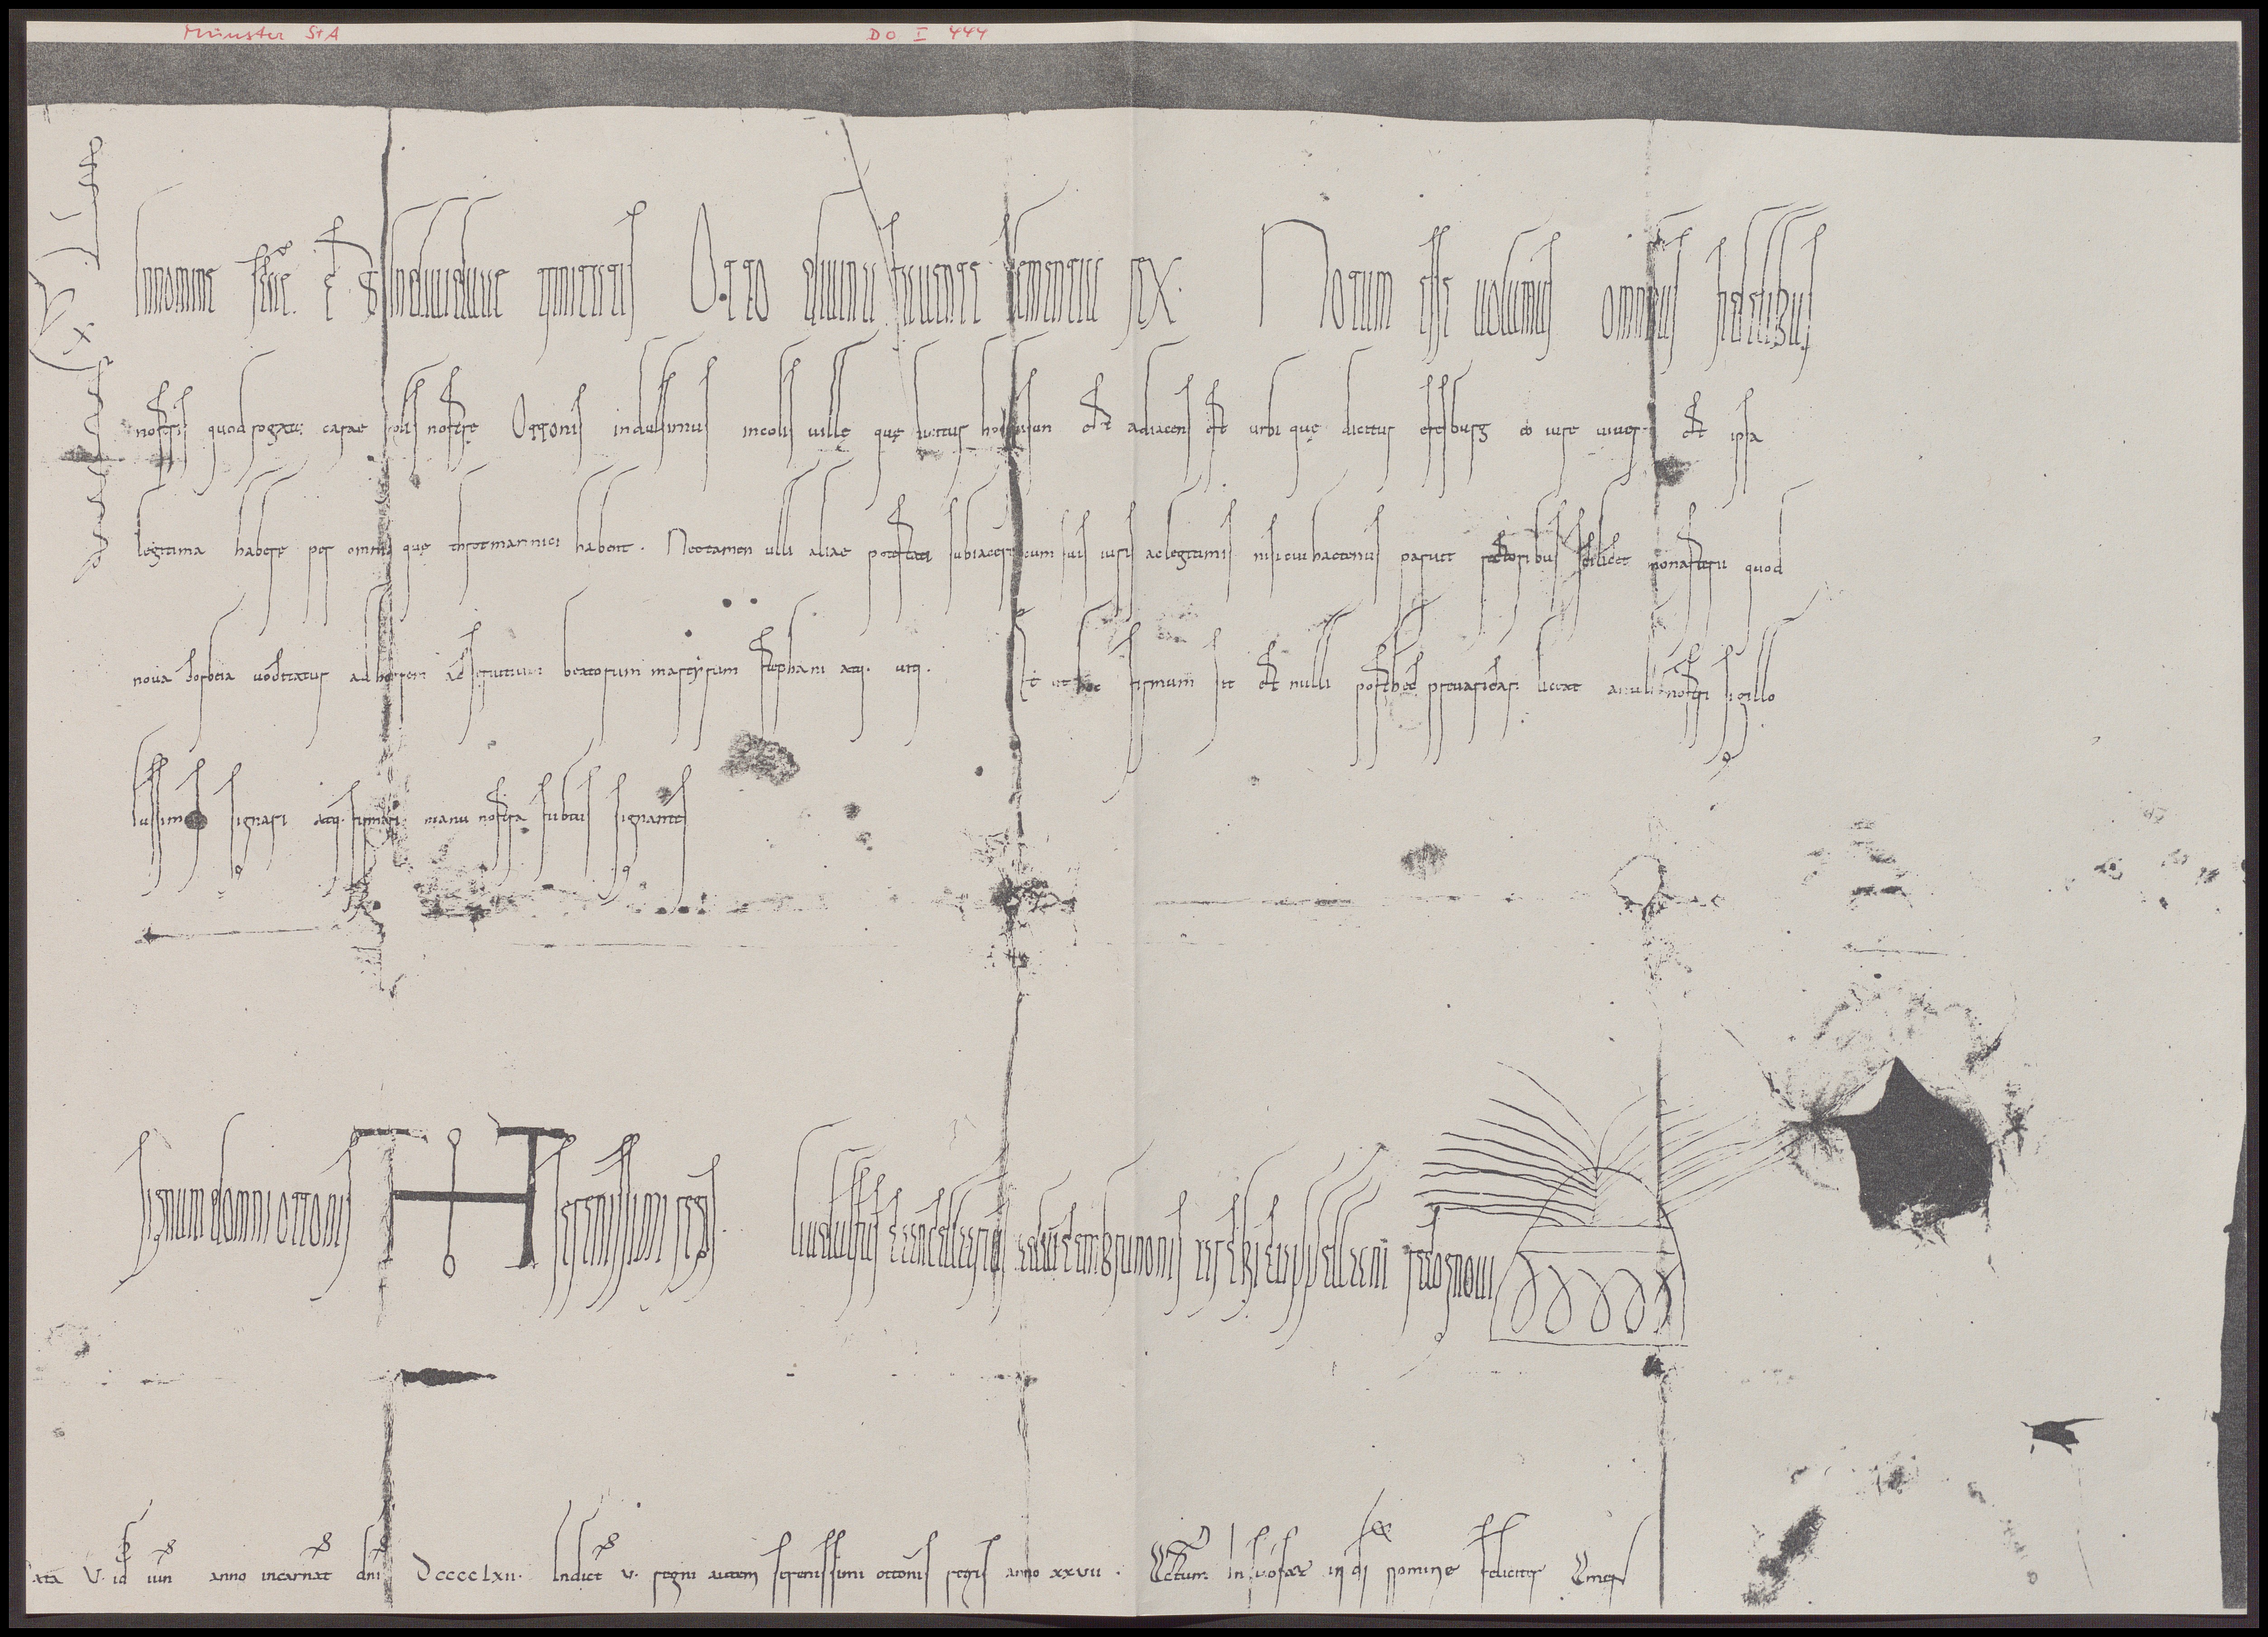 Münster StA DO I 444
In nomine sanctę et individuae trinitatis Otto divina favente clementia rex. Notum esse volumus omnibus fidelibus
nostris quod rogatu carae nostrę Ottonis indulsimus incolis villę quę dicitur est adiacens est urbi quę dicitur eresburg eo iure vivere et ipsa
legitima habere per omnia quę throtmannici habent. Nec tamen ulli aliae potestati subiacere cum suis iuris ac legitimis nisi cui hactenus paruit rectoribus scilicet monasterii quod
nova corbeia vocitatur ad honorem beatorum martyrum stephani atq. viti. Et ut hoc firmum sit et nulli post hęc pervaricari liceat anuli nostri sigillo
iussimus signari atq. firmari manu nostra subtus signantes
Signum domni ottonis serenissimi regis. Liudulfus cancellarius advicem brunonis archicappellani recognovi
ata V. id iun anno incarnat dni DCCCCLXII. Indict V. regni autem serenissimi ottonis regis anno XXVII. Actum in in di nomine feliciter Amen